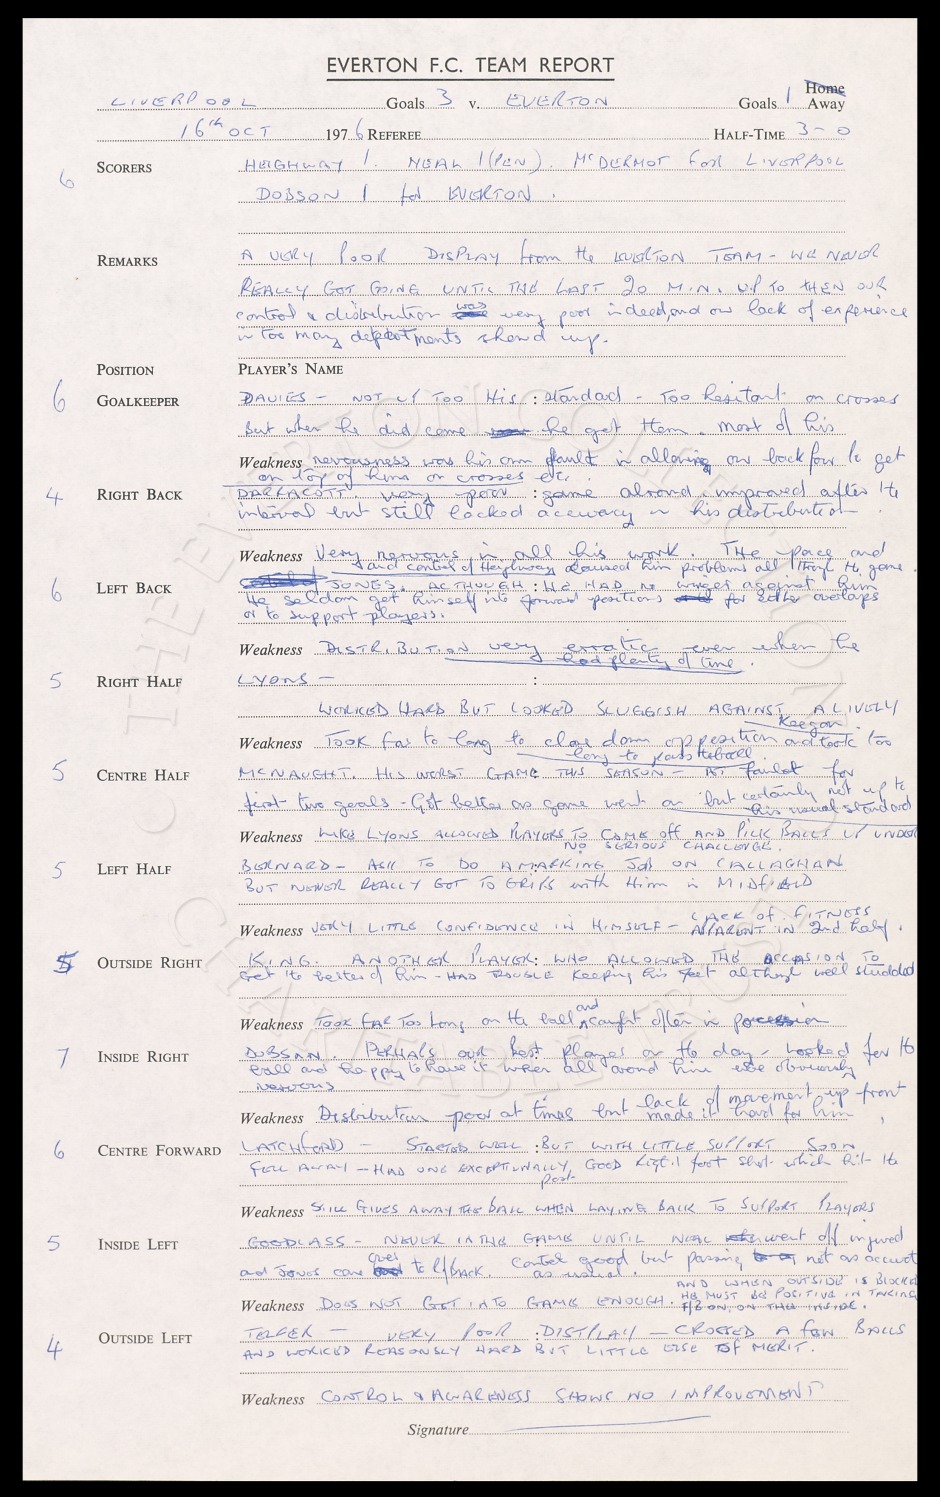 EVERTON F.C. TEAM REPORT
Home
LIVERPOOL Goals 3 v. EVERTON Goals 1 Away
16th OCT 1976 REFEREE HALF-TIME 3-0
6 SCORERS HEIGHWAY 1. NEAL 1 (PEN). McDERMOT for LIVERPOOL
DOBSON 1 for EVERTON.
REMARKS A VERY POOR DISPLAY from the EVERTON TEAM - WE NEVER
REALLY GOT GOING UNTIL THE LAST 20 MIN. UP TO THEN OUR
control & distribution was very poor indeed, and our lack of experience
in too many depatments showed up.
POSITION PLAYER'S NAME
6 GOALKEEPER DAVIES - NOT UP TOO His : standard - Too hesitant on crosses
But when he did come he got them. most of his
Weakness nervousness was his own fault in allowing our back four to get
on top of him on crosses etc.
4 RIGHT BACK DARRACOTT. very poor : game almond. improved after the
interval but still lacked accuracy in his distribution
Weakness Very nervous in all his work. THE pace and
and control of Heighway caused him problems all through the game.
6 LEFT BACK JONES. ALTHOUGH : HE HAD no winger against him
He seldom got himself into forward positions for either overlaps
or to support players.
Weakness DISTRIBUTION very erratic even when he
had plenty of time.
5 RIGHT HALF LYONS - :
WORKED HARD BUT LOOKED SLUGGISH AGAINST A LIVELY
Keegan.
Weakness Took far to long to close down opposition and took too
long to pass the ball
5 CENTRE HALF McNAUGHT. HIS WORST GAME THIS SEASON - AT fault for
first two goals - Got better as game went on but certainly not up to
his usual standard
Weakness LIKE LYONS ALLOWED PLAYERS TO COME off AND PICK BALLS UP UNDER
NO SERIOUS CHALLENGE.
5 LEFT HALF BERNARD - ASK TO DO A MARKING JOB ON CALLAGHAN
BUT NEVER REALLY GOT TO GRIPS with Him in MIDFIELD
Weakness VERY LITTLE CONFIDENCE IN HIMSELF - LACK OF FITNESS
APPARENT IN 2nd half.
5 OUTSIDE RIGHT KING. ANOTHER PLAYER: WHO ALLOWED THE OCCASION TO
Get the better of him - HAD TROUBLE keeping his feet although well studded
Weakness TOOK FAR TOO Long on the ball and caught often in possession
7 INSIDE RIGHT DOBSON. PERHAPS our best: player on the day - Looked for the
ball and happy to have it when all around him were obviously
nervous
Weakness Distribution poor at times but lack of movement up front
made it hard for him
6 CENTRE FORWARD LATCHFORD - STARTED WELL : BUT WITH LITTLE SUPPORT Soon
FELL AWAY - HAD ONE EXCEPTIONALLY GOOD Right foot shot which hit the
post
Weakness STILL GIVES AWAY THE BALL WHEN LAYING BACK TO SUPPORT PLAYERS
5 INSIDE LEFT GOODLASS - NEVER IN THE GAME UNTIL NEAL went off injured
and JONES came over to l/back. Control good but passing not as accurate
as usual.
Weakness DOES NOT GET INTO GAME ENOUGH. AND WHEN OUTSIDE IS BLOCKED
HE MUST BE POSITIVE IN TAKING
F/B ON, ON THE INSIDE.
4 OUTSIDE LEFT TELFER - VERY POOR : DISTPLAY - CROSSED A few BALLS
AND WORKED REASONSLY HARD BUT LITTLE ELSE OF MERIT.
Weakness CONTROL & AWARENESS SHOWS NO IMPROVEMENT
Signature
THE EVERTON COLLECTION
CHARITABLE TRUST